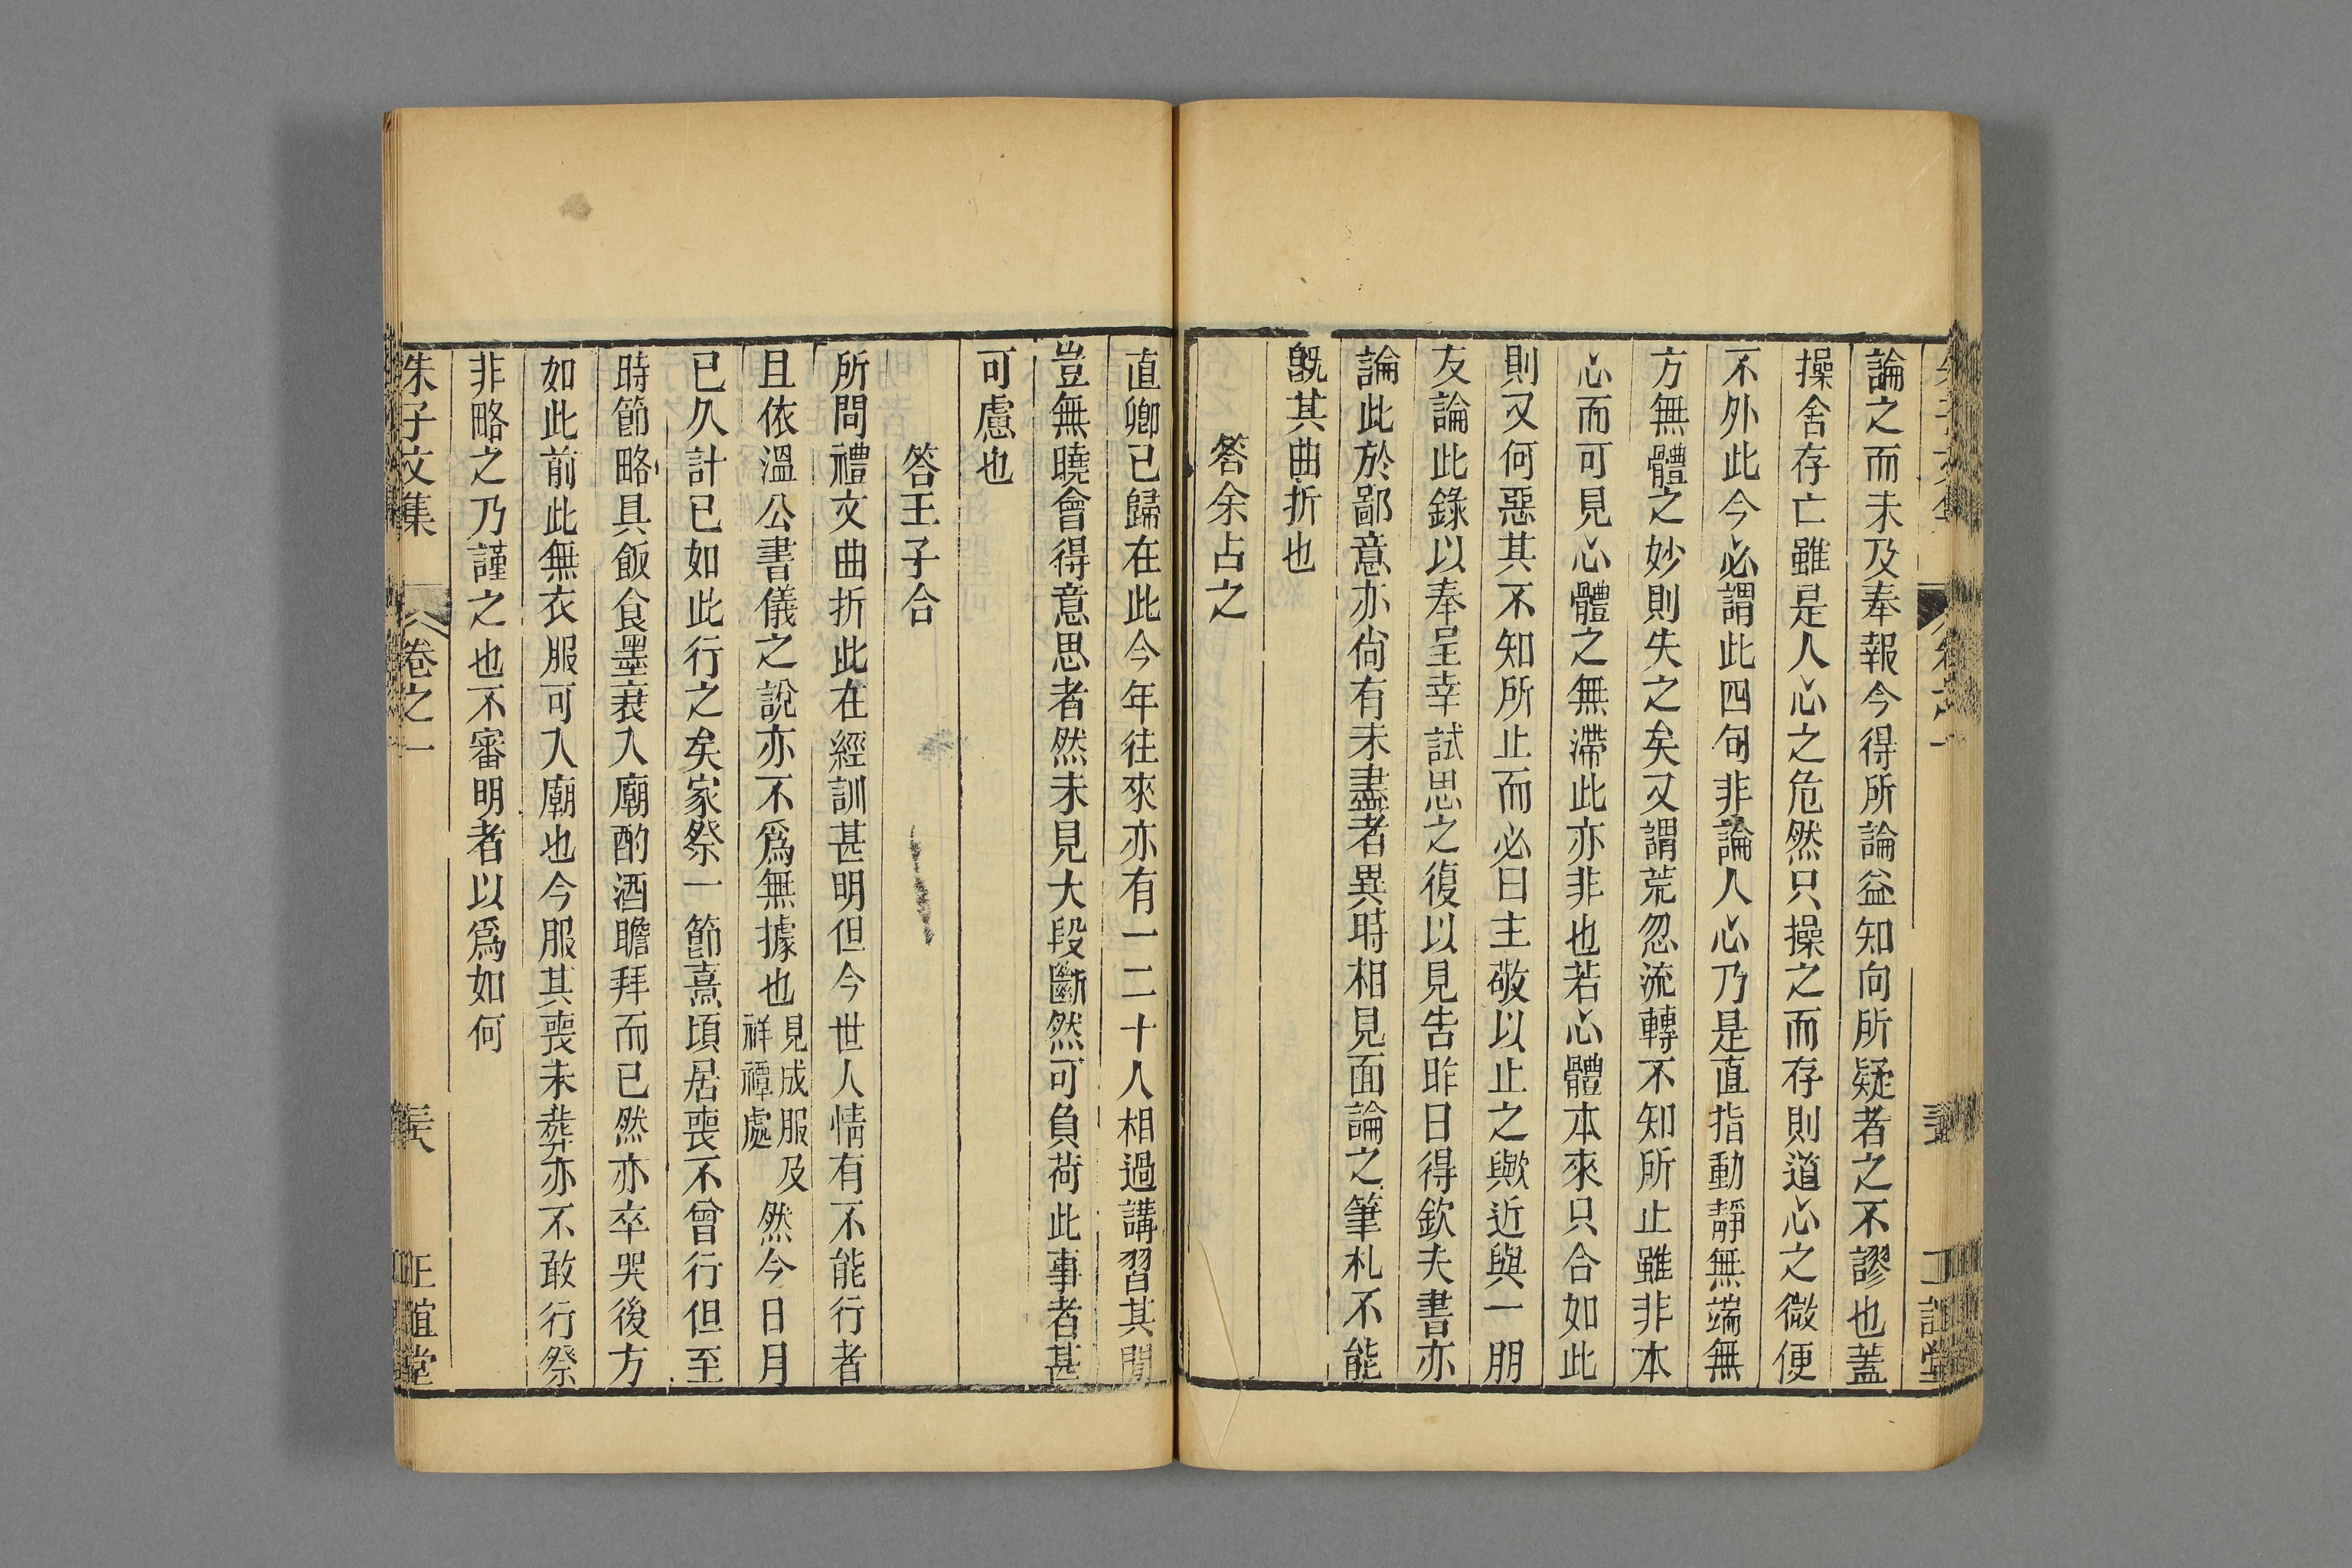 論之而未及奉報今得所論益知向所疑者之不謬也蓋
操舍存亡雖是人心之危然只操之而存則道心之微便
不外此今必謂此四句非論人心乃是直指動靜無端無
方無體之妙則失之矣又謂荒忽流轉不知所止雖非本
心而可見心體之無滯此亦非也若心體本來只合如此
則又何惡其不知所止而必曰主敬以止之歟近與一朋
友論此錄以奉呈幸試思之復以見告昨日得欽夫書亦
論此於鄙意亦尙有未盡者異時相見面論之筆札不能
旣其曲折也
答余占之
直卿已歸在此今年往來亦有一二十人相過講習其閒
豈無曉會得意思者然未見大段斷然可負荷此事者甚
可慮也
答王子合
所問禮文曲折此在經訓甚明但今世人情有不能行者
且依溫公書儀之說亦不爲無據也見成服及祥禫處然今日月
已久計已如此行之矣家祭一節熹頃居喪不曾行但至
時節略具飯食墨衰入廟酌酒瞻拜而已然亦卒哭後方
如此前此無衣服可入廟也今服其喪未葬亦不敢行祭
非略之乃謹之也不審明者以爲如何
朱子文集 卷之一 正誼堂